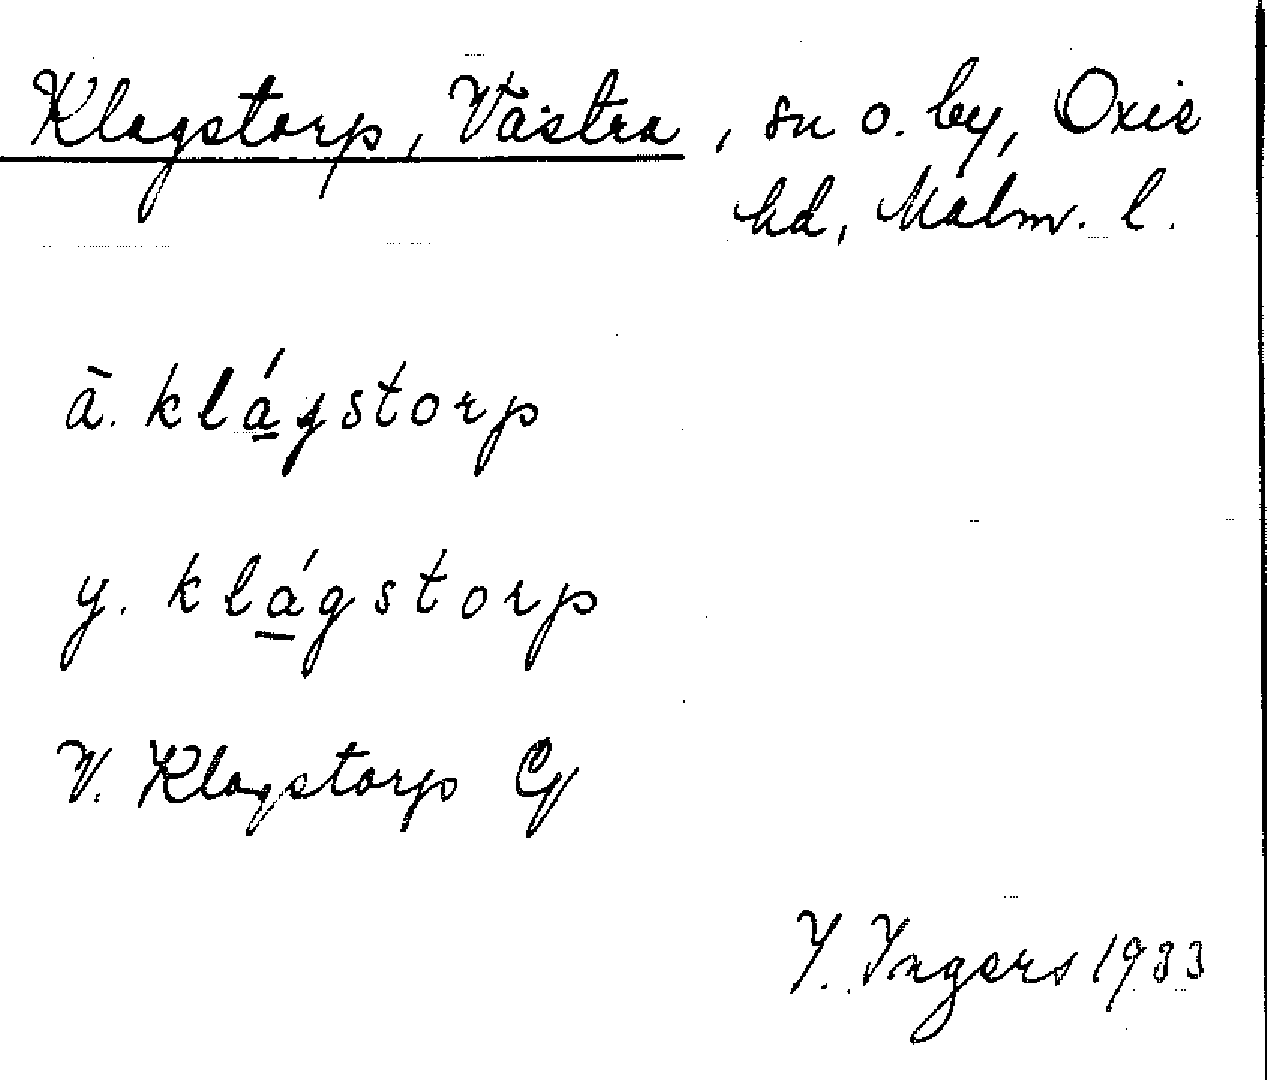 Klagstorp, Västra, sn o. by, Oxie
hd, Malm. l.
ä. klágstorp
y. klágstorp
V. Klagstorp
I. Ingers 1933